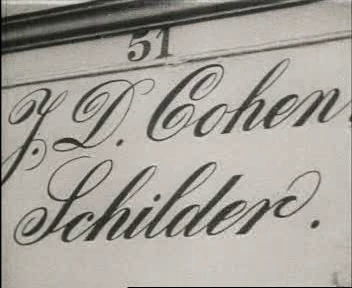 51
J. D. Cohen.
Schilder.